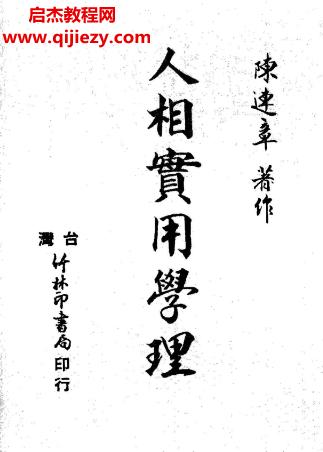 启杰教程网
www.qijiezy.com
陳達章 著作
人相實用學理
台灣
竹林印書局 印行